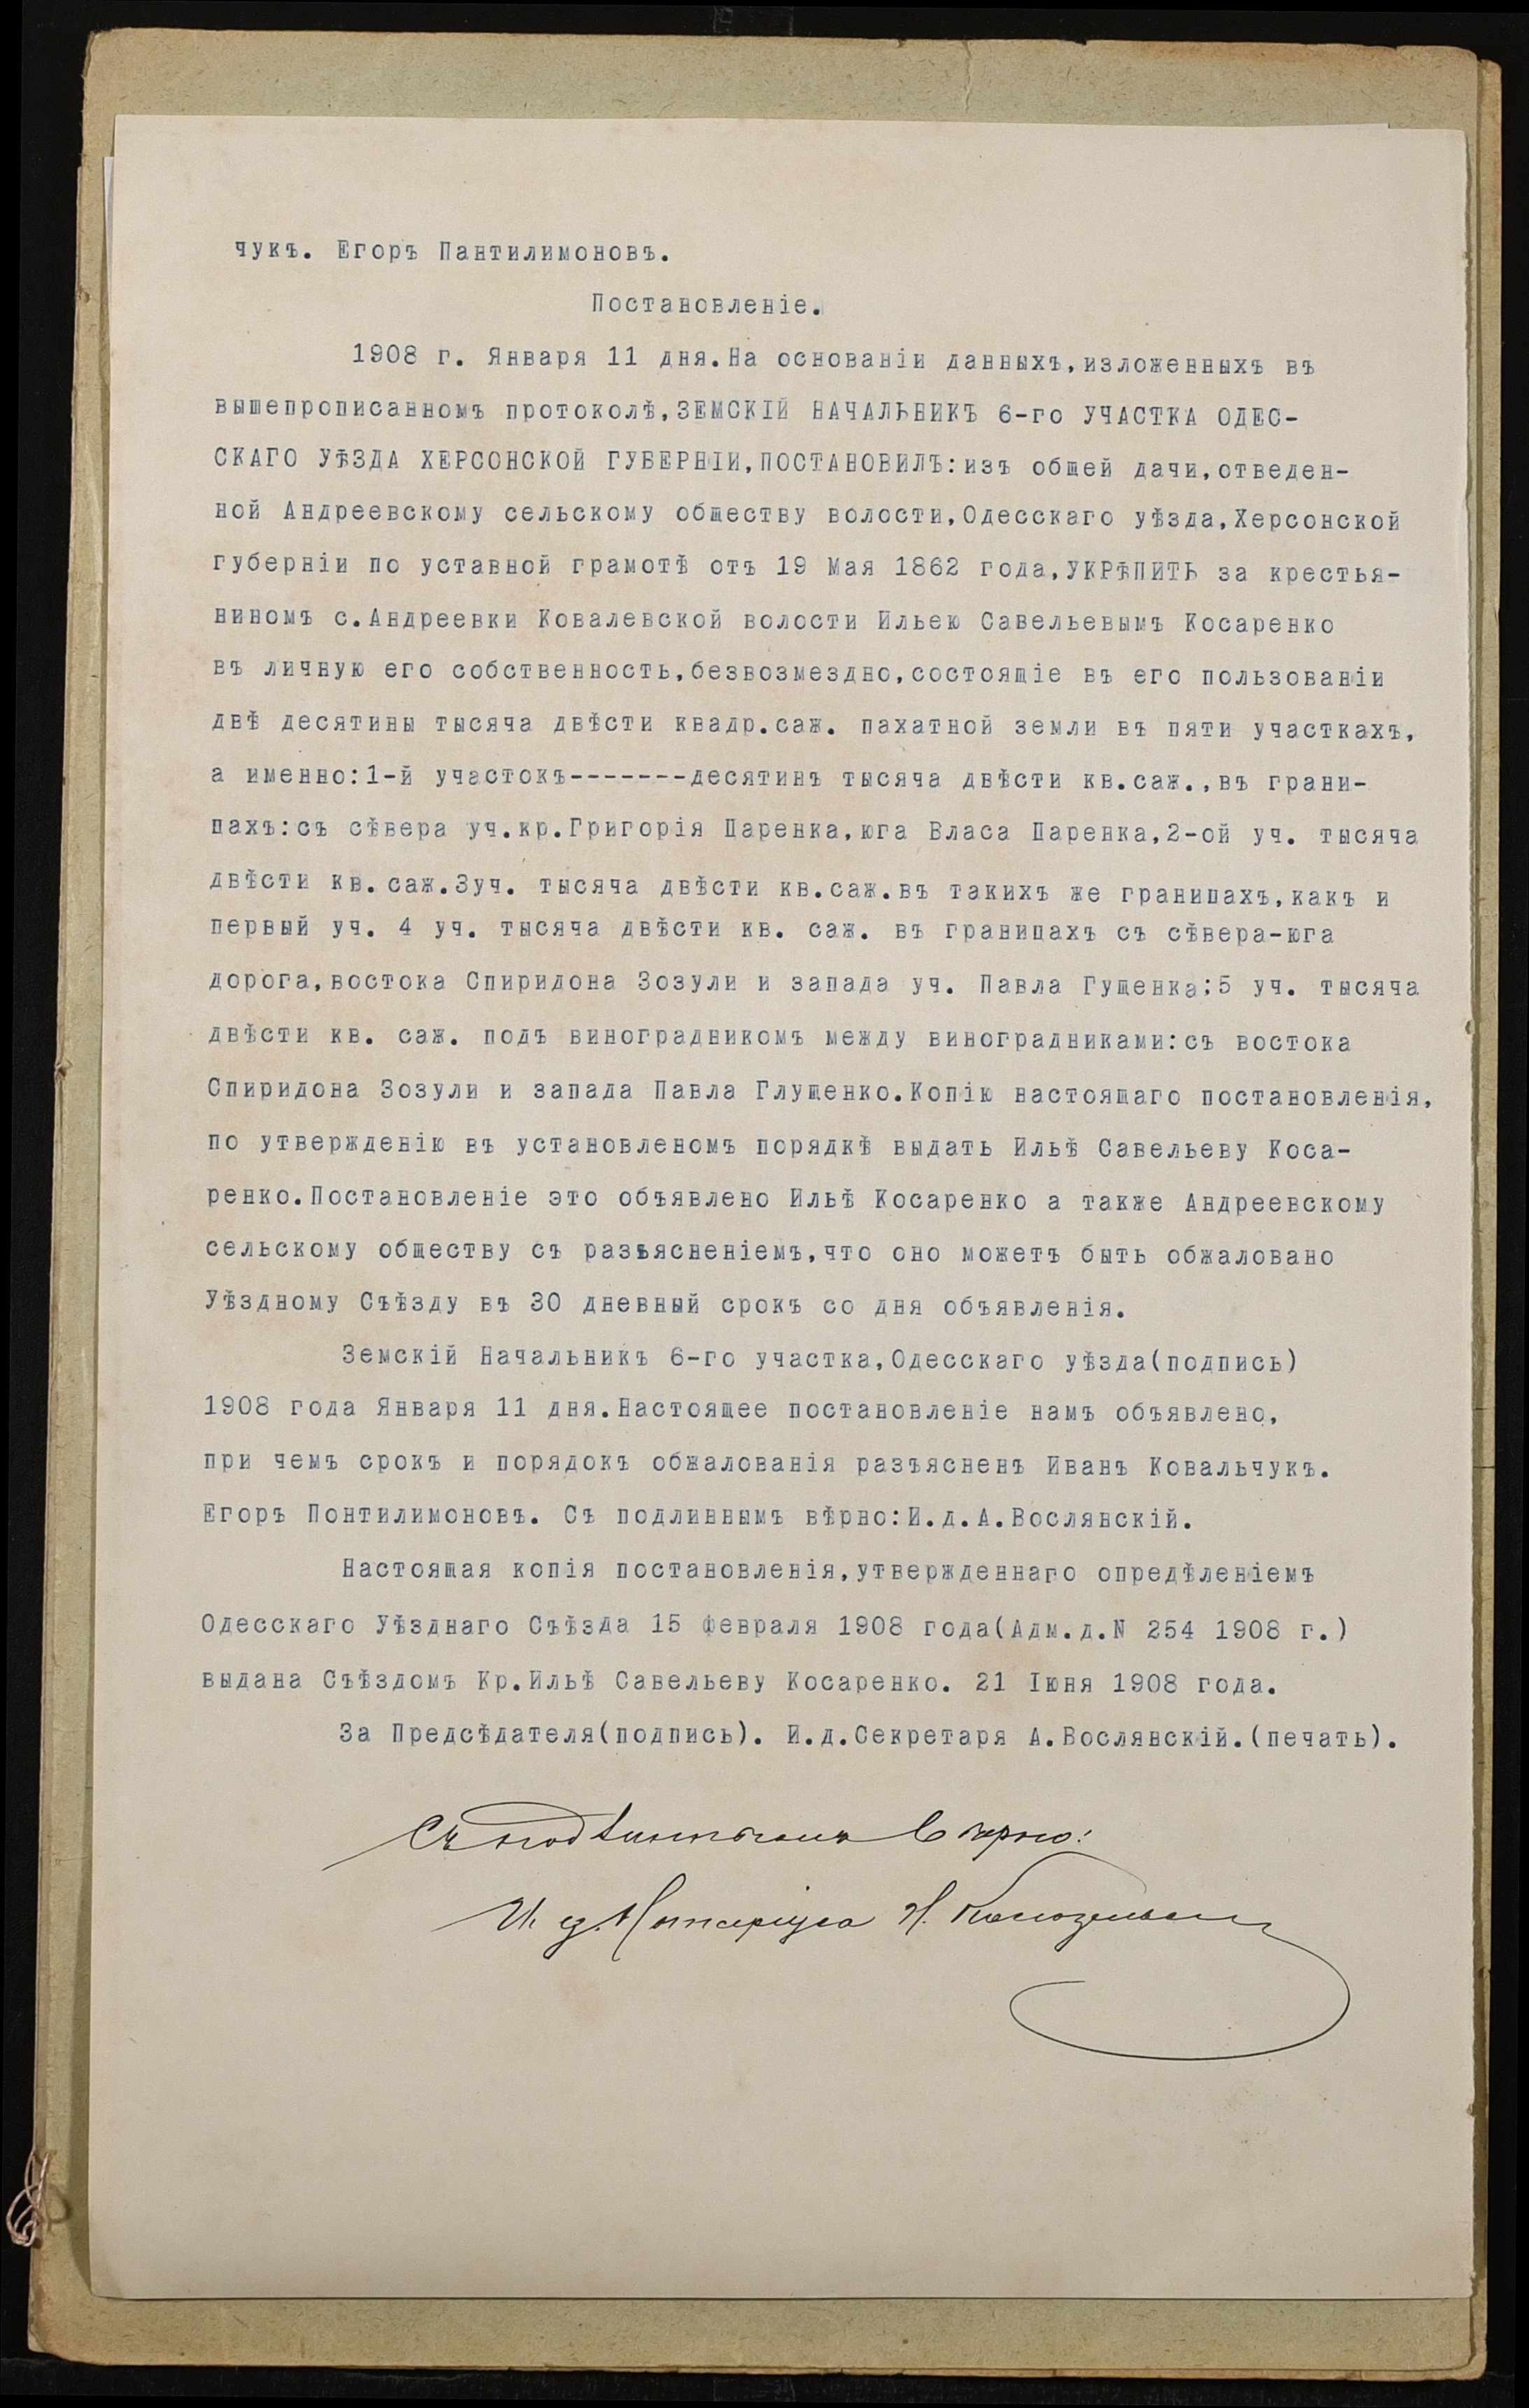 чукъ. Егоръ Пантилимоновъ.
Постановленіе.
1908 г. Января 11 дня.На основаніи данныхъ,изложенныхъ въ
вышепрописанномъ протоколѣ,ЗЕМСКІЙ НАЧАЛЬНИКЪ 6-го УЧАСТКА ОДЕС-
СКАГО УѢЗДА ХЕРСОНСКОЙ ГУБЕРНІИ,ПОСТАНОВИЛЪ:изъ общей дачи,отведен-
ной Андреевскому сельскому обществу волости,Одесскаго уѣзда,Херсонской
губерніи по уставной грамотѣ отъ 19 Мая 1862 года,УКРѢПИТЬ за крестья-
ниномъ с.Андреевки Ковалевской волости Ильею Савельевымъ Косаренко
въ личную его собственность,безвозмездно,состоящіе въ его пользованіи
двѣ десятины тысяча двѣсти квадр.саж. пахатной земли въ пяти участкахъ,
а именно:1-й участокъ-------десятинъ тысяча двѣсти кв.саж.,въ грани-
цахъ:съ сѣвера уч.кр.Григорія Царенка,юга Власа Царенка,2-ой уч. тысяча
двѣсти кв.саж.3уч. тысяча двѣсти кв.саж.въ такихъ же границахъ,какъ и
первый уч. 4 уч. тысяча двѣсти кв. саж. въ границахъ съ сѣвера-юга
дорога,востока Спиридона Зозули и запада уч. Павла Гущенка;5 уч. тысяча
двѣсти кв. саж. подъ виноградникомъ между виноградниками:съ востока
Спиридона Зозули и запада Павла Глущенко.Копію настоящаго постановленія,
по утвержденію въ установленомъ порядкѣ выдать Ильѣ Савельеву Коса-
ренко.Постановленіе это объявлено Ильѣ Косаренко а также Андреевскому
сельскому обществу съ разъясненіемъ,что оно можетъ быть обжаловано
Уѣздному Съѣзду въ 30 дневный срокъ со дня объявленія.
Земскій Начальникъ 6-го участка,Одесскаго уѣзда(подпись)
1908 года Января 11 дня.Настоящее постановленіе намъ объявлено,
при чемъ срокъ и порядокъ обжалованія разъясненъ Иванъ Ковальчукъ.
Егоръ Понтилимоновъ. Съ подлиннымъ вѣрно:И.д.А.Вослянскій.
Настоящая копія постановленія,утвержденнаго опредѣленіемъ
Одесскаго Уѣзднаго Съѣзда 15 февраля 1908 года(Адм.д.N 254 1908 г.)
выдана Съѣздомъ Кр.Ильѣ Савельеву Косаренко. 21 Іюня 1908 года.
За Предсѣдателя(подпись). И.д.Секретаря А.Вослянскій.(печать).
Съ подлиннымъ вѣрно:
И. д. Нотаріуса Н.